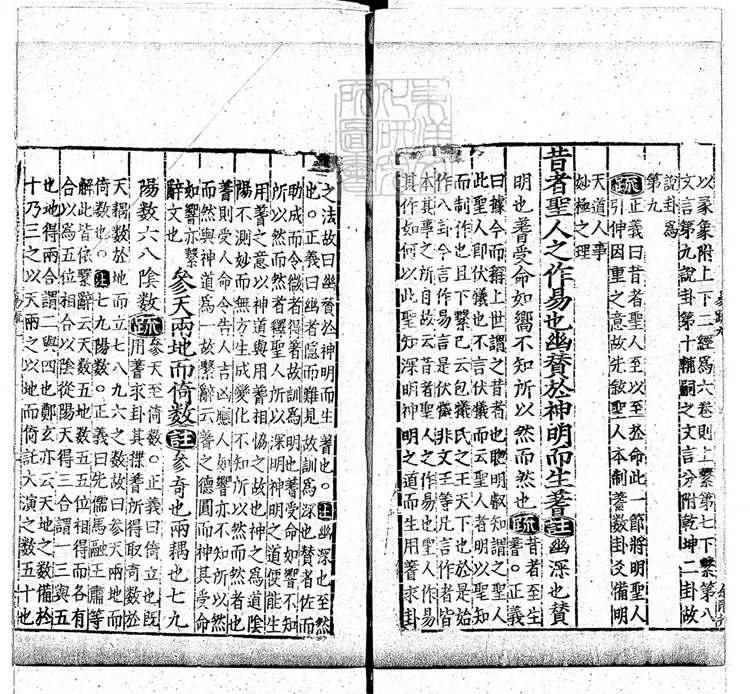 以彖象附上下二經爲六卷則上繫第七下繫第八
文言第九說卦第十輔嗣之文言分附乾坤二卦故
說卦爲
第九
疏正義曰昔者聖人至以至於命此一節將明聖人
引伸因重之意故先敘聖人本制蓍數卦爻備明
天道人事
妙極之理
昔者聖人之作易也幽贊於神明而生蓍註幽深也贊
明也蓍受命如嚮不知所以然而然也疏昔者至生
蓍。正義
曰據今而稱上世謂之昔者也聰明叡知謂之聖知
此聖人即伏犧也不言伏犧而云聖人者明以聖知
而制作也且下繫已云包犧氏之王天下也於是始
作八卦今言作易言是伏犧非文王等凡言作者皆
本其事之所自故云昔者聖人之作易也聖人作易
其作如何以此聖知深明神明之道而生用蓍求卦
之法故曰幽贊於神明而生蓍也。注幽深也至然
也。正義曰幽者隱而難見故訓爲深也贊者佐而
助成而令微者得著故訓爲明也蓍受命如響不知
所以然而然者釋聖人所以深明神明之道便能生
用蓍之意以神道與用蓍相協之故也神之爲道陰
陽不測妙而無方生成變化不知所以然而然者也
蓍則受人命令告人吉凶應人如響亦不知所以然
而然與神道爲一故繫辭云蓍之德圓而神其受命
如響亦繫
辭文也
參天兩地而倚數註參奇也兩耦也七九
陽數六八陰數疏參天至倚數。正義曰倚立也既
用蓍求卦其揲蓍所得取奇數於
天耦數於地而立七八九六之數故曰參天兩地而
倚數也。注七九陽數。正義曰先儒馬融王肅等
解此皆依繫辭云天數五地數五五位相得而各有
合以爲五位相合以陰從陽天得三合謂一三與五
也地得兩合謂二與四也鄭玄亦云天地之數備於
十乃三之以天兩之以地而倚託大演之數五十也
東洋文化研究所圖書